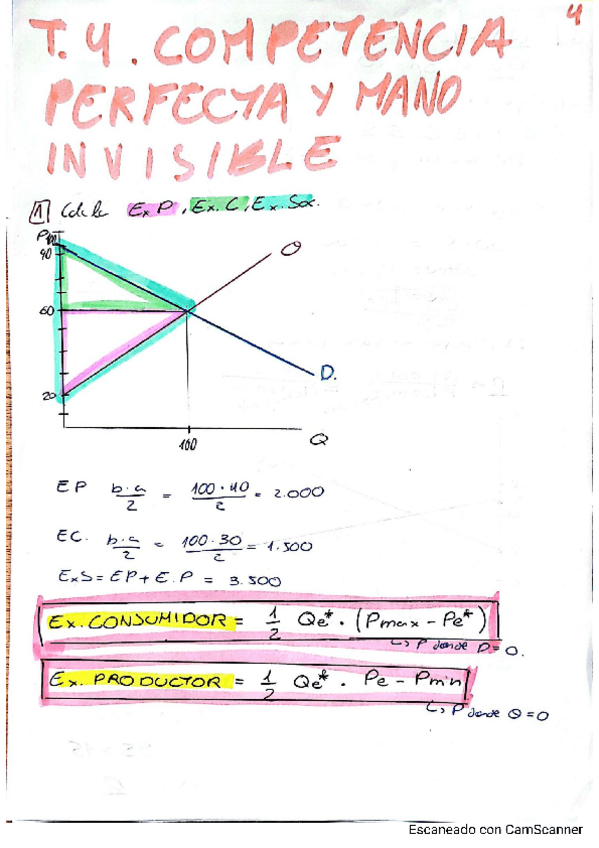 4
T.4. COMPETENCIA
PERFECTA Y MANO
INVISIBLE
1 Calcula Ex P, Ex. C, Ex. Soc.
P
100
90
O
60
D.
20
100
Q
EP b.a/2 = 100.40/2 = 2.000
EC. b.a/2 = 100.30/2 = 1.500
ExS = EP + E.P = 3.500
Ex. CONSUMIDOR = 1/2 Qe* . (Pmax - Pe*)
↳ P donde D=0.
Ex. PRODUCTOR = 1/2 Qe* . Pe - Pmin
↳ P donde O=0
Escaneado con CamScanner